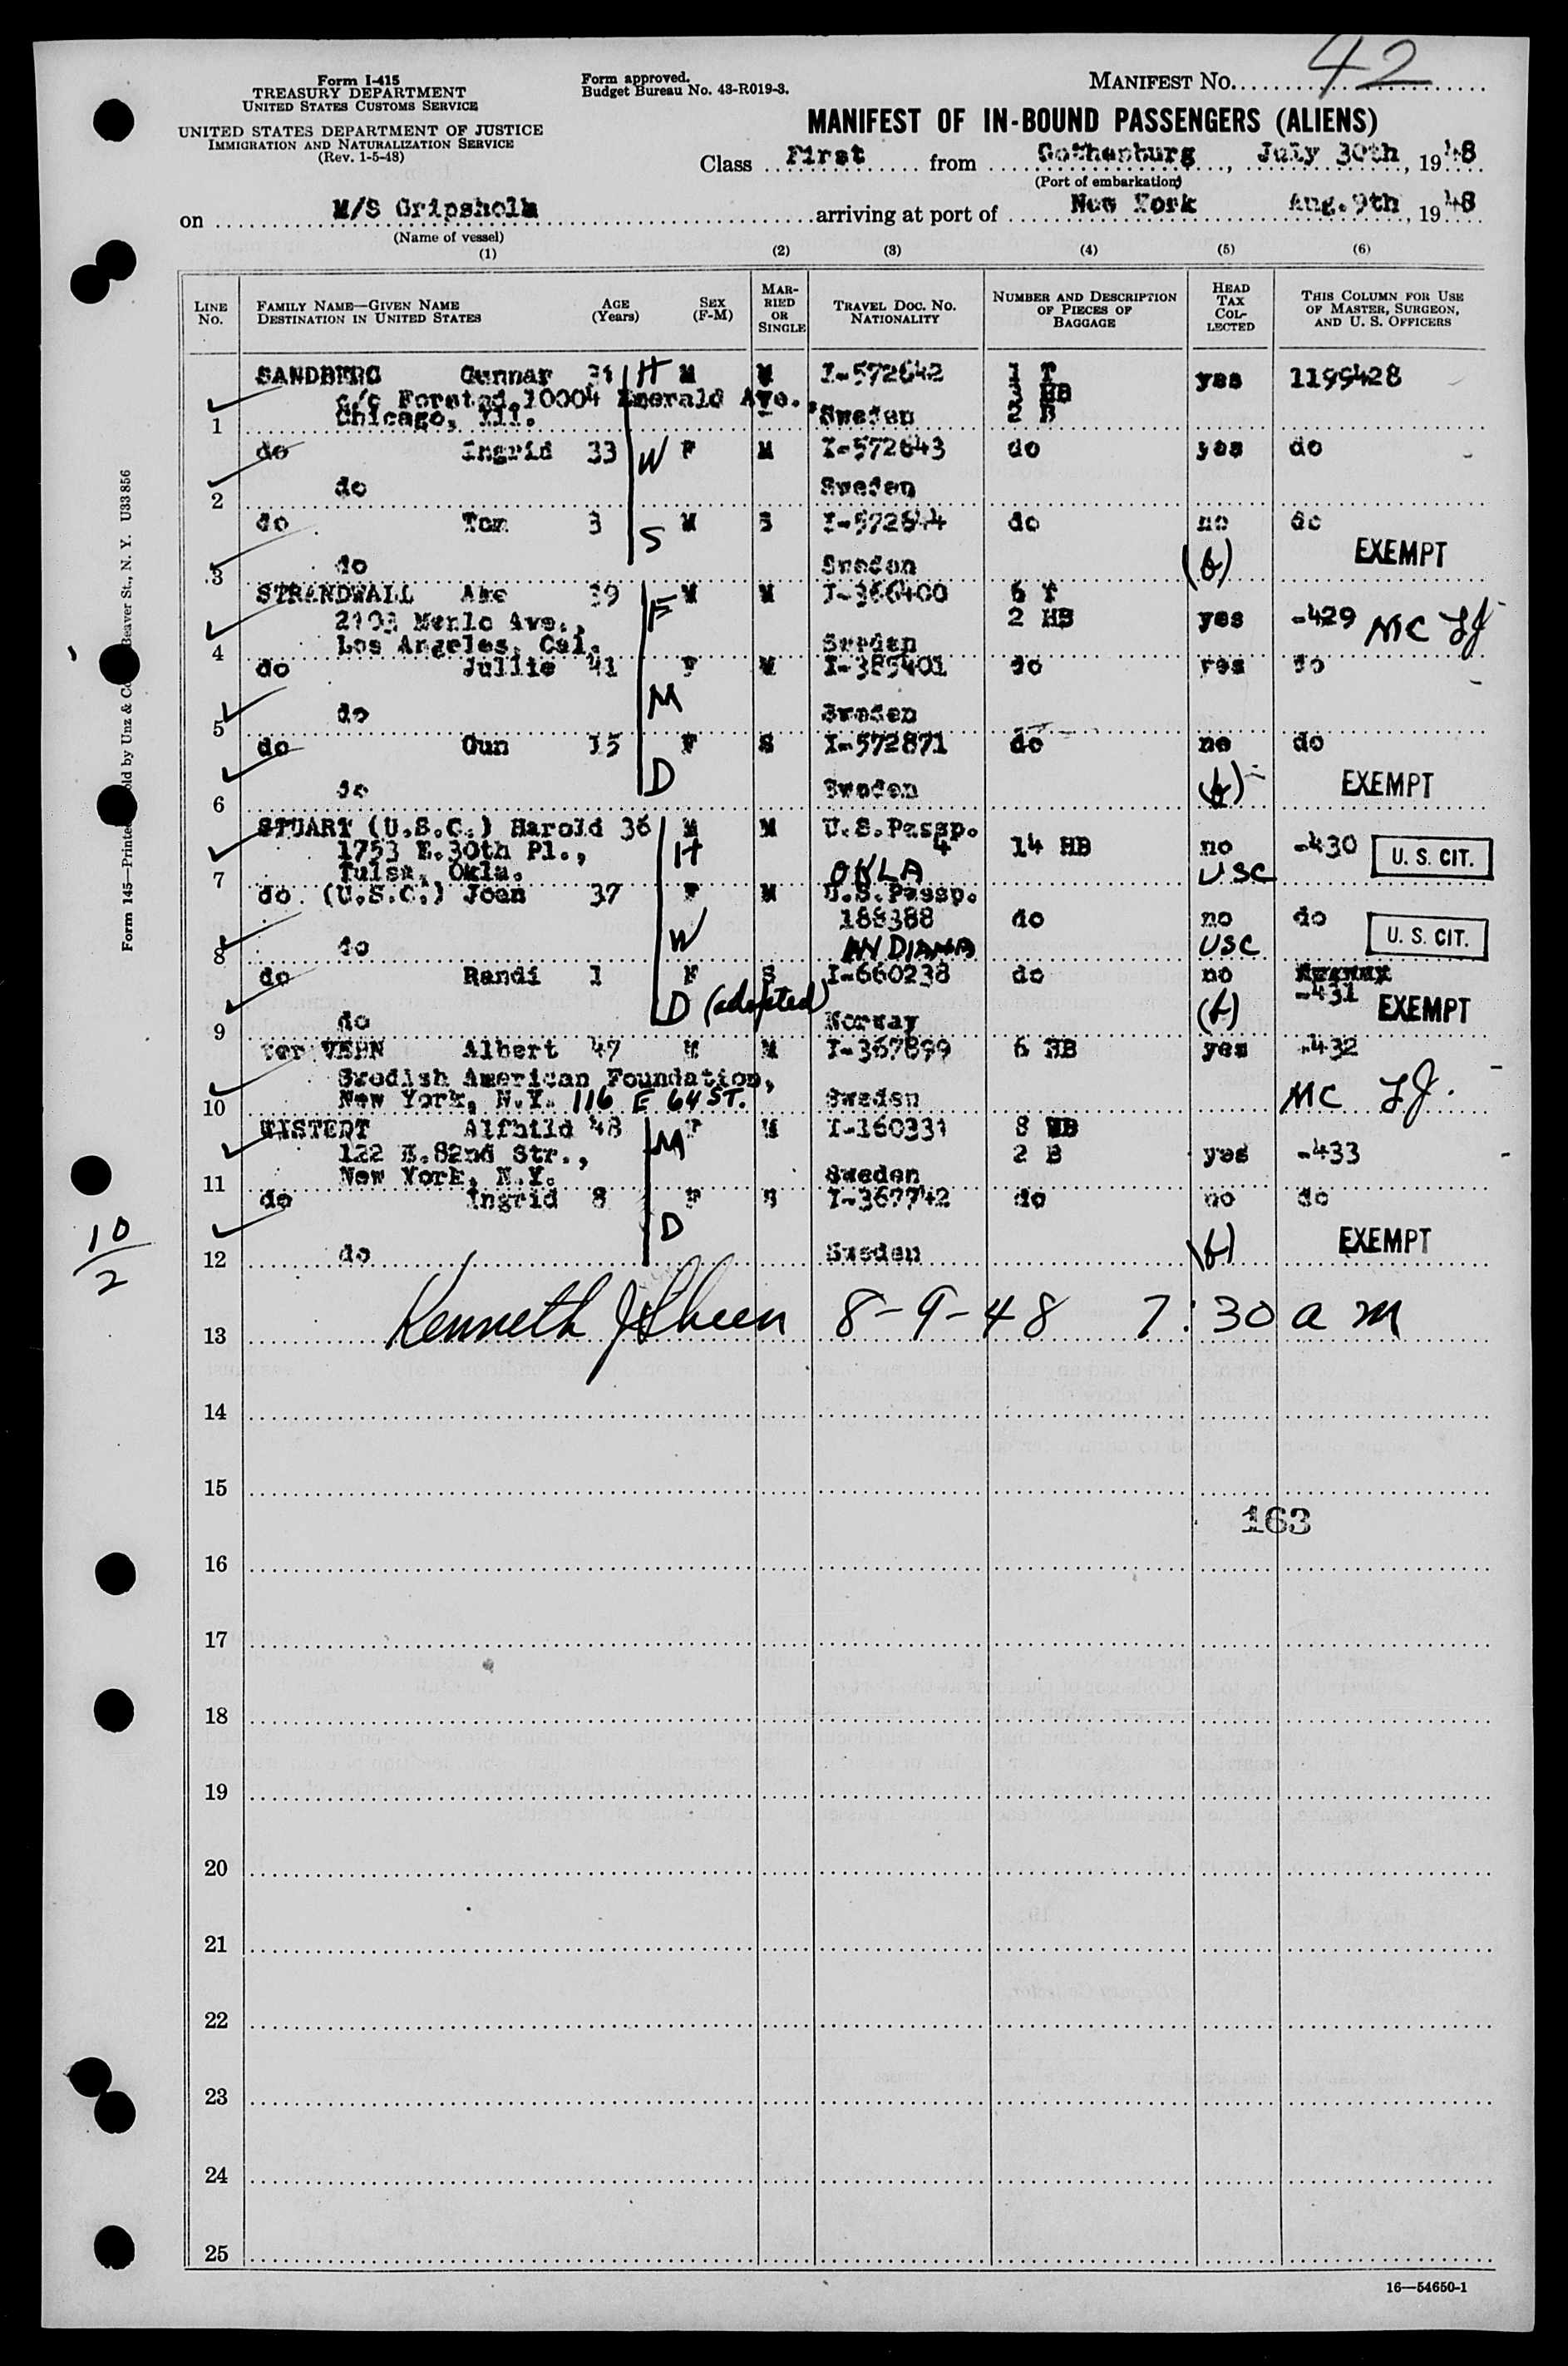 Form I-415
TREASURY DEPARTMENT
UNITED STATES CUSTOMS SERVICE
UNITED STATES DEPARTMENT OF JUSTICE
IMMIGRATION AND NATURALIZATION SERVICE
(Rev. 1-5-48)
Form approved.
Budget Bureau No. 43-R019-3.
MANIFEST NO. 42
MANIFEST OF IN-BOUND PASSENGERS (ALIENS)
Class First from Gothenburg, July 30th, 1948
(Port of embarkation)
on M/S Gripsholm arriving at port of New York Aug. 9th, 1948
(Name of vessel)
(1) (2) (3) (4) (5) (6)
LINE NO. FAMILY NAME—GIVEN NAME DESTINATION IN UNITED STATES AGE (Years) SEX (F-M) MARRIED OR SINGLE TRAVEL DOC. NO. NATIONALITY NUMBER AND DESCRIPTION OF PIECES OF BAGGAGE HEAD TAX COLLECTED THIS COLUMN FOR USE OF MASTER, SURGEON, AND U. S. OFFICERS
SANDBERG Gunnar 31 H M M I-572642 1 T yes 1199428
c/o Forstad, 10004 Emerald Ave., 3 HB
1 Chicago, Ill. Sweden 2 B
do Ingrid 33 W F M I-572643 do yes do
2 do Sweden
do Tom 3 S M S I-572644 do no do
3 do Sweden (f) EXEMPT
STRANDWALL Ake 39 F M M I-366400 6 T
2103 Menlo Ave., 2 HB yes -429 MC LJ
4 Los Angeles, Cal. Sweden
do Jullie 41 M F M I-385401 do yes do
5 do Sweden
do Gun 15 D F S I-572871 do no do
6 do Sweden (f) EXEMPT
STUART (U.S.C.) Harold 36 H M M U.S.Passp.
1753 E.30th Pl., 4 14 HB no -430 U. S. CIT.
7 Tulsa, Okla. OKLA USC
do (U.S.C.) Joan 37 W F M U.S.Passp.
188388 do no do U. S. CIT.
8 do INDIANA USC
do Randi 1 F S I-660238 do no
-431
9 do D (adopted) Norway (f) EXEMPT
ter VEHN Albert 47 M M I-367899 6 HB yes -432
Swedish American Foundation,
10 New York, N.Y. 116 E 64 ST. Sweden MC LJ.
WISTEDT Alfhild 48 M F M I-160331 8 HB
122 E.82nd Str., 2 B yes -433
11 New York, N.Y. Sweden
do Ingrid 8 D F S I-367742 do no do
12 do Sweden (f) EXEMPT
10/2
13 Kenneth J Sheen 8-9-48 7:30 a m
14
15
163
16
17
18
19
20
21
22
23
24
25
16—54650-1